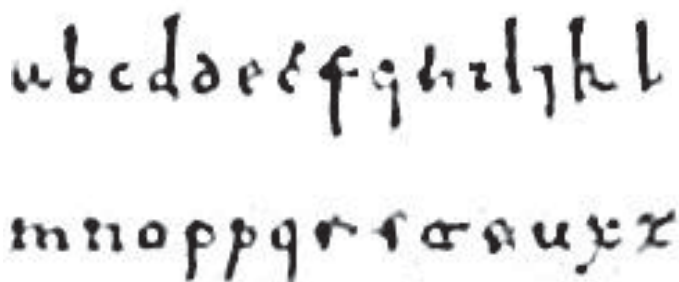 u b c d d e e f g h i l j k l
m n o p p q r s t u x